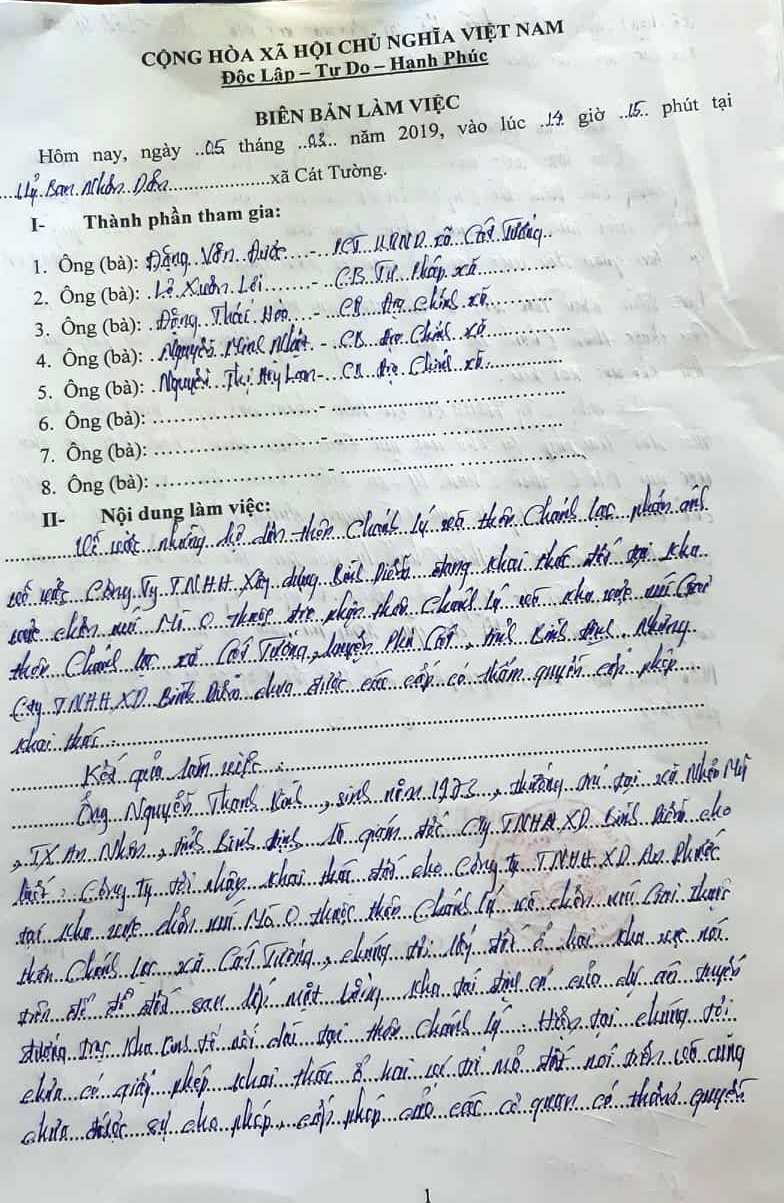 CỘNG HÒA XÃ HỘI CHỦ NGHĨA VIỆT NAM
Độc Lập – Tự Do – Hạnh Phúc
BIÊN BẢN LÀM VIỆC
Hôm nay, ngày ..05 tháng ..03.. năm 2019, vào lúc .14. giờ ..15.. phút tại
...Uỷ.Ban.Nhân.Dân....................xã Cát Tường.
I- Thành phần tham gia:
1. Ông (bà): Đặng Văn Được - PCT UBND xã Cát Tường
2. Ông (bà): Lê Xuân Lợi - CB Tư Pháp xã
3. Ông (bà): Đặng Thái Hòa - CB địa chính xã
4. Ông (bà): Nguyễn Minh Nhật - CB địa chính xã
5. Ông (bà): Nguyễn Thị Mỹ Loan - CB địa chính xã
6. Ông (bà): ........................- ........................
7. Ông (bà): ........................- ........................
8. Ông (bà): ........................- ........................
II- Nội dung làm việc:
Về việc những hộ dân thôn Chánh Lý và thôn Chánh Lạc phản ánh
về việc Công Ty TNHH Xây dựng Bình Diễn đang khai thác đất tại khu
vực chân núi Mò O thuộc địa phận thôn Chánh Lý và khu vực núi Gai
thôn Chánh Lạc xã Cát Tường, huyện Phù Cát, tỉnh Bình Định. Nhưng
Cty TNHH XD Bình Diễn chưa được các cấp có thẩm quyền cấp phép
khai thác.
Kết quả làm việc:
Ông Nguyễn Thanh Bình, sinh năm 1973, thường trú tại xã Nhơn Mỹ
, TX An Nhơn, tỉnh Bình Định là giám đốc Cty TNHH XD Bình Diễn cho
biết: Công ty tôi nhận khai thác đất cho Công ty TNHH XD An Phước
tại khu vực chân núi Mò O thuộc thôn Chánh Lý và chân núi Gai thuộc
thôn Chánh Lạc xã Cát Tường, chúng tôi lấy đất ở hai khu vực nói
trên để đổ đất san lấp mặt bằng khu tái định cư của dự án tuyến
đường trục Khu kinh tế nối dài tại thôn Chánh Lý. Hiện tại chúng tôi
chưa có giấy phép khai thác ở hai vị trí mỏ đất nói trên và cũng
chưa được sự cho phép, cấp phép của các cơ quan có thẩm quyền
1